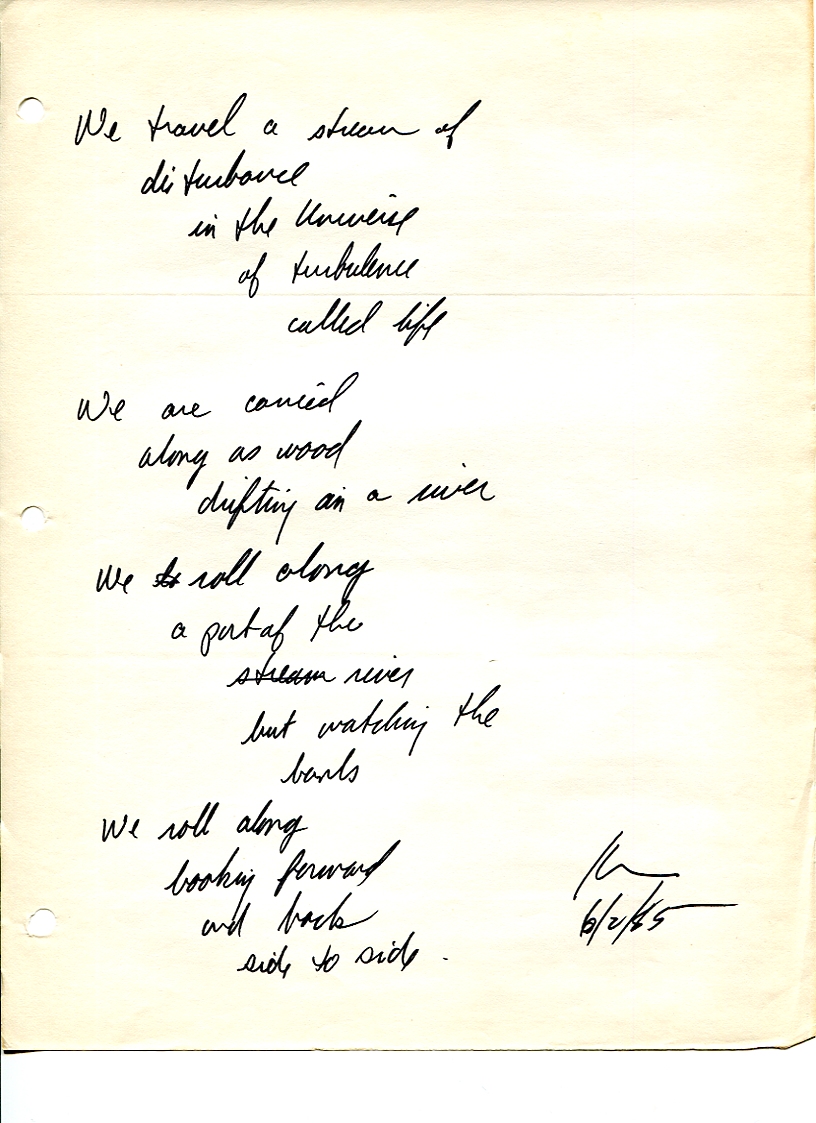 We travel a stream of
disturbance
in the Universe
of turbulence
called life
We are carried
along as wood
drifting in a river
We to roll along
a part of the
stream river
but watching the
banks
We roll along
looking forward
and back
side to side.
6/2/85